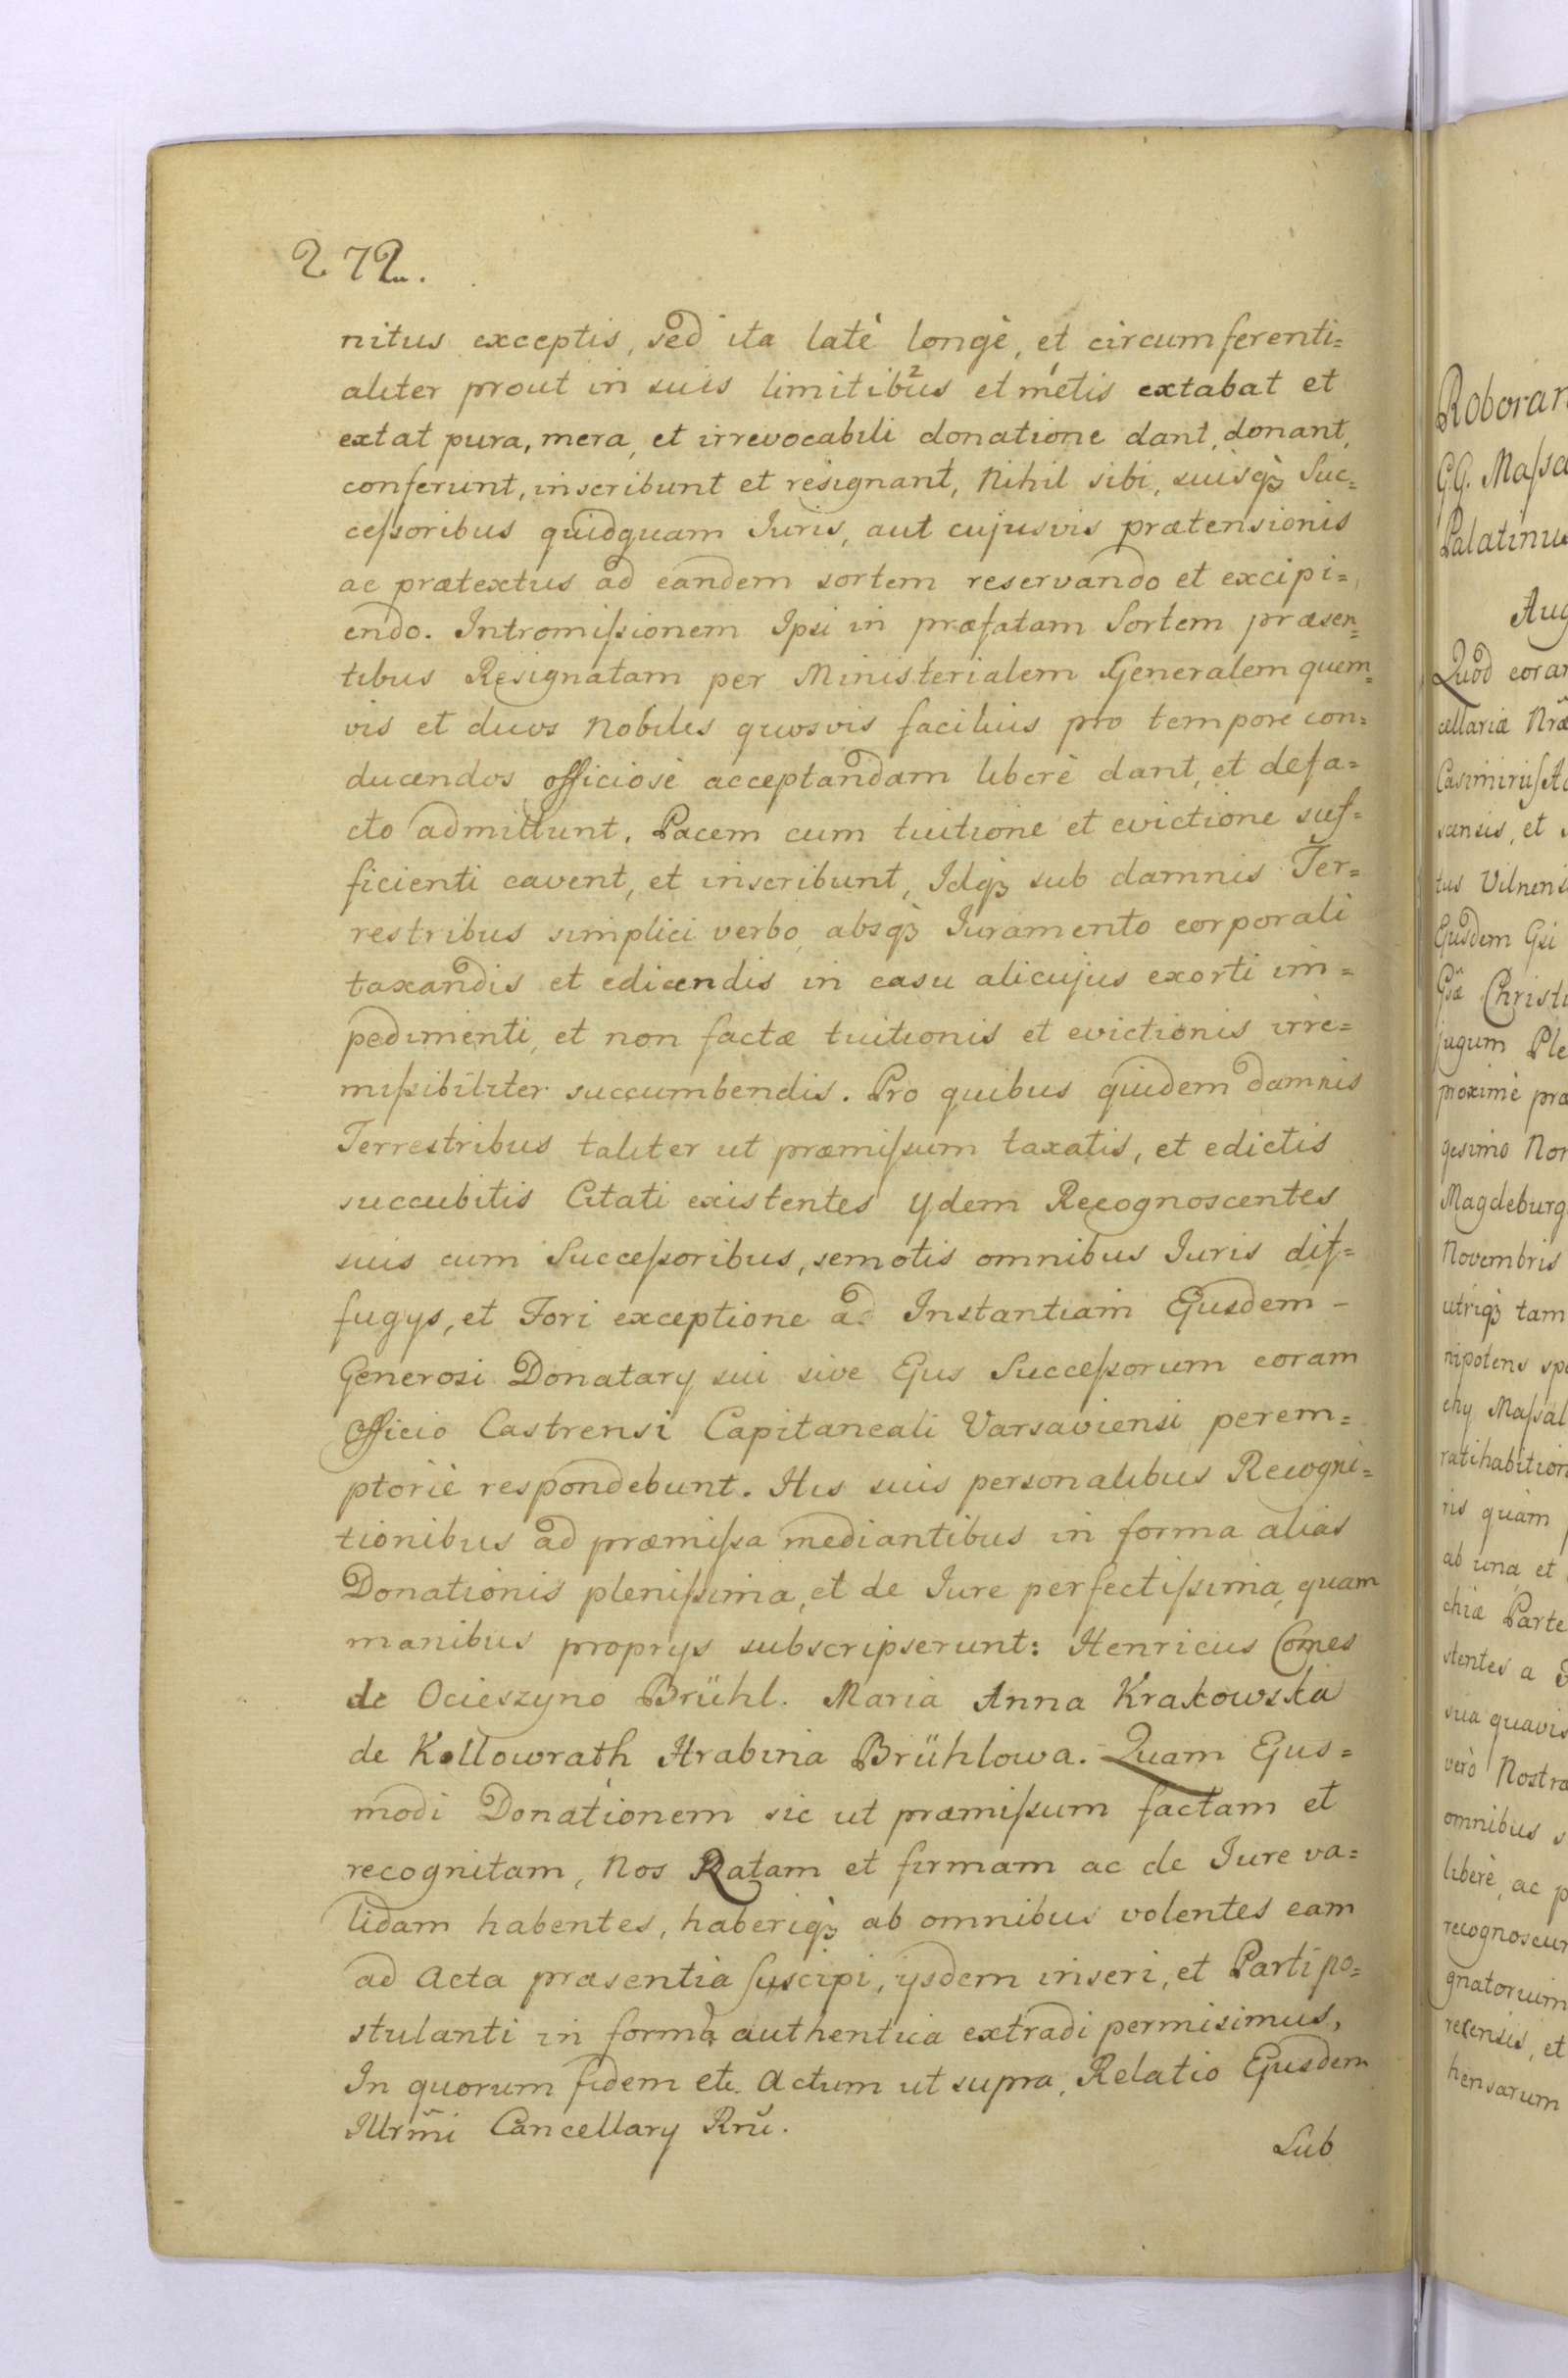 272.
nitus exceptis, sed ita latè longè, et circumferenti=
aliter prout in suis limitibus et metis extabat et
extat pura, mera, et irrevocabili donatione dant, donant,
conferunt, inscribunt et resignant, Nihil sibi, suisqꝫ Suc=
ceſsoribus quidquam Iuris, aut cujusvis prætensionis
ac prætextus ad eandem sortem reservando et excipi=
endo. Intromiſsionem Ipsi in præfatam Sortem præsen=
tibus Resignatam per Ministerialem Generalem quem=
vis et duos Nobiles quosvis facilius pro tempore con=
ducendos officiosè acceptandam liberè dant, et defa=
cto admittunt. Pacem cum tuitione et evictione suf=
ficienti cavent, et inscribunt, Idqꝫ sub damnis Ter=
restribus simplici verbo absqꝫ Iuramento corporali
taxandis et edicendis in casu alicujus exorti im=
pedimenti, et non factæ tuitionis et evictionis irre=
miſsibiliter succumbendis. Pro quibus quidem damnis
Terrestribus taliter ut præmiſsum taxatis, et edictis
succubitis Citati existentes ydem Recognoscentes
suis cum Succeſsoribus, semotis omnibus Iuris dif=
fugys, et Fori exceptione ad Instantiam Ejusdem -
Generosi Donatary sui sive Ejus Succeſsorum coram
Officio Castrensi Capitaneali Varsaviensi perem=
ptoriè respondebunt. His suis personalibus Recogni=
tionibus ad præmiſsa mediantibus in forma alias
Donationis pleniſsima, et de Iure perfectiſsima, quam
manibus proprys subscripserunt: Henricus Comes
de Ocieszyno Brühl. Maria Anna Krakowska
de Kollowrath Hrabina Brühlowa. Quam Ejus=
modi Donationem sic ut præmiſsum factam et
recognitam, Nos Ratam et firmam ac de Iure va=
lidam habentes, haberiqꝫ ab omnibus volentes eam
ad Acta præsentia suscipi, ysdem inseri, et Parti po=
stulanti in forma authentica extradi permisimus,
In quorum fidem etc. Actum ut supra, Relatio Ejusdem
Illrm̃i Cancellary Rnũ.
Sub
Roboran
GG. Maſsa
Palatinus
Aug
Quod coram
cellariæ Nræ
Casimirus
scensis, et
tus Vilnens
Ejusdem Gsi
Gsæ Christi
jugum Ple
proximè præ
gesimo Non
Magdeburg
Novembris
utriqꝫ tam
nipotens spe
chy Maſsal
ratihabition
ris quàm
ab una, et
chiæ Parte
stentes a
sua quavis
verò Nostra
omnibus s
liberè, ac p
recognoscun
gnatorium
recensis, et
hensarum